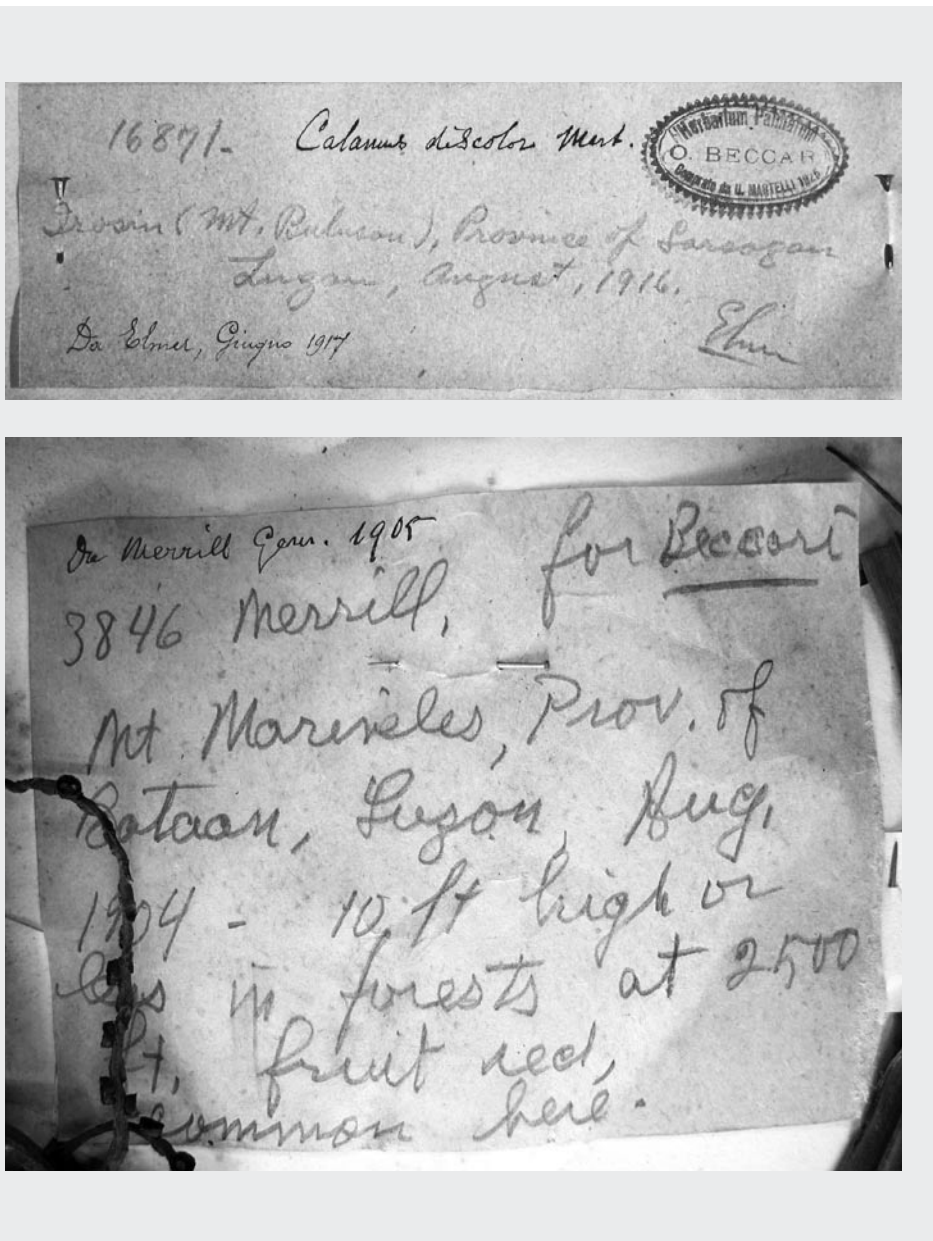 16871- Calamus discolor Mart.
Herbarium Palmarum
O. BECCARI
Comprato da U. MARTELLI 1925
Irosin (Mt. Bulusan), Province of Sorsogon
Luzon, August, 1916.
Elmer
Da Elmer, Giugno 1917
Da Merrill Genn. 1905
for Beccari
3846 Merrill,
Mt Mariveles, Prov. of
Bataan, Luzon, Aug.
1904 - 10 ft high or
less in forests at 2500
ft, fruit red,
common here.